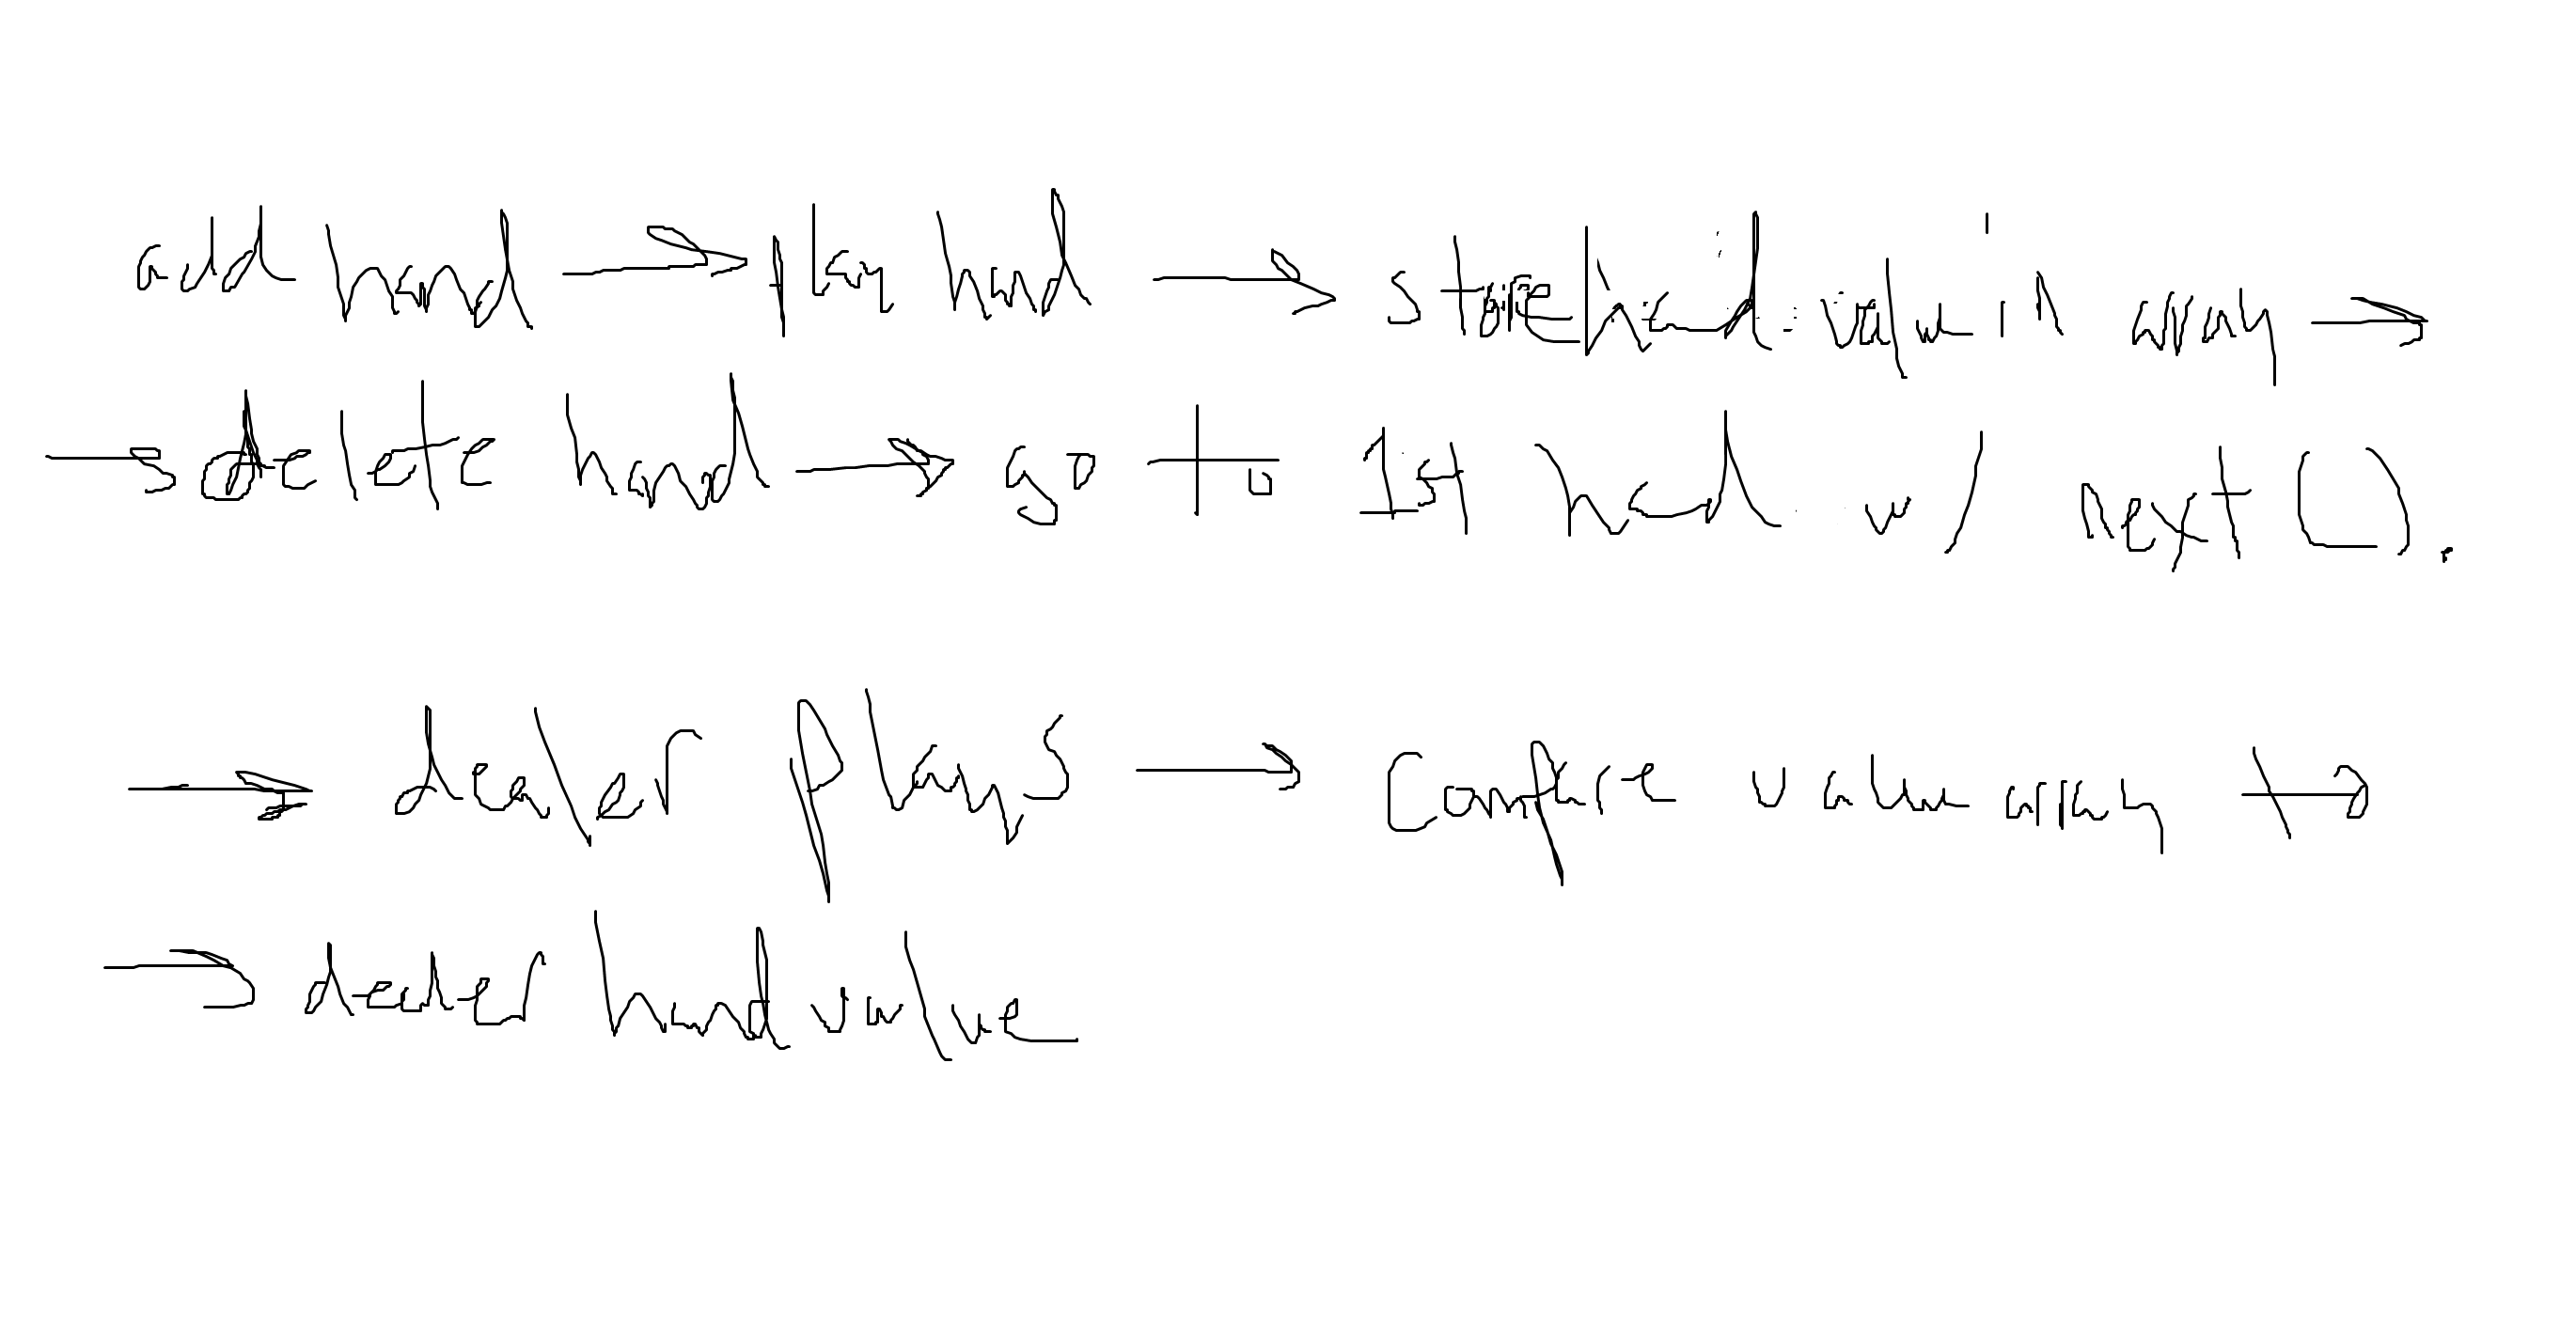 add hand → play hand → store hand value in array →
→ delete hand → go to 1st hand w/ next().
→ dealer plays → Compare value array to
→ dealer hand value